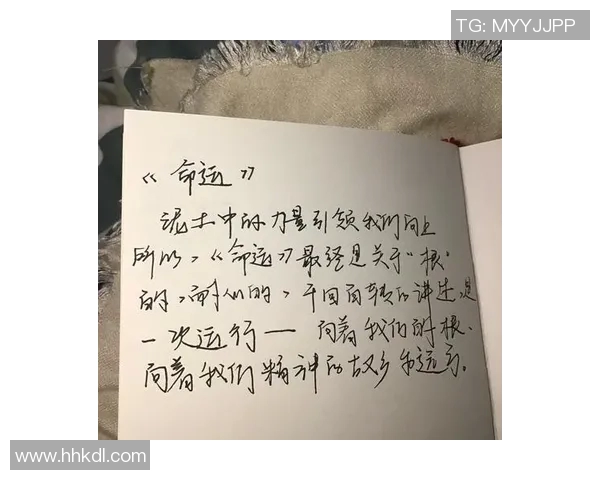 TG: MYYJJPP
《命运》
泥土中的力量引领我们向上
所以，《命运》最终是关于"根"
的，耐人的，千回百转的讲述，是
一次运行——向着我们的根、
向着我们精神的故乡和远方。
www.hhkdl.com